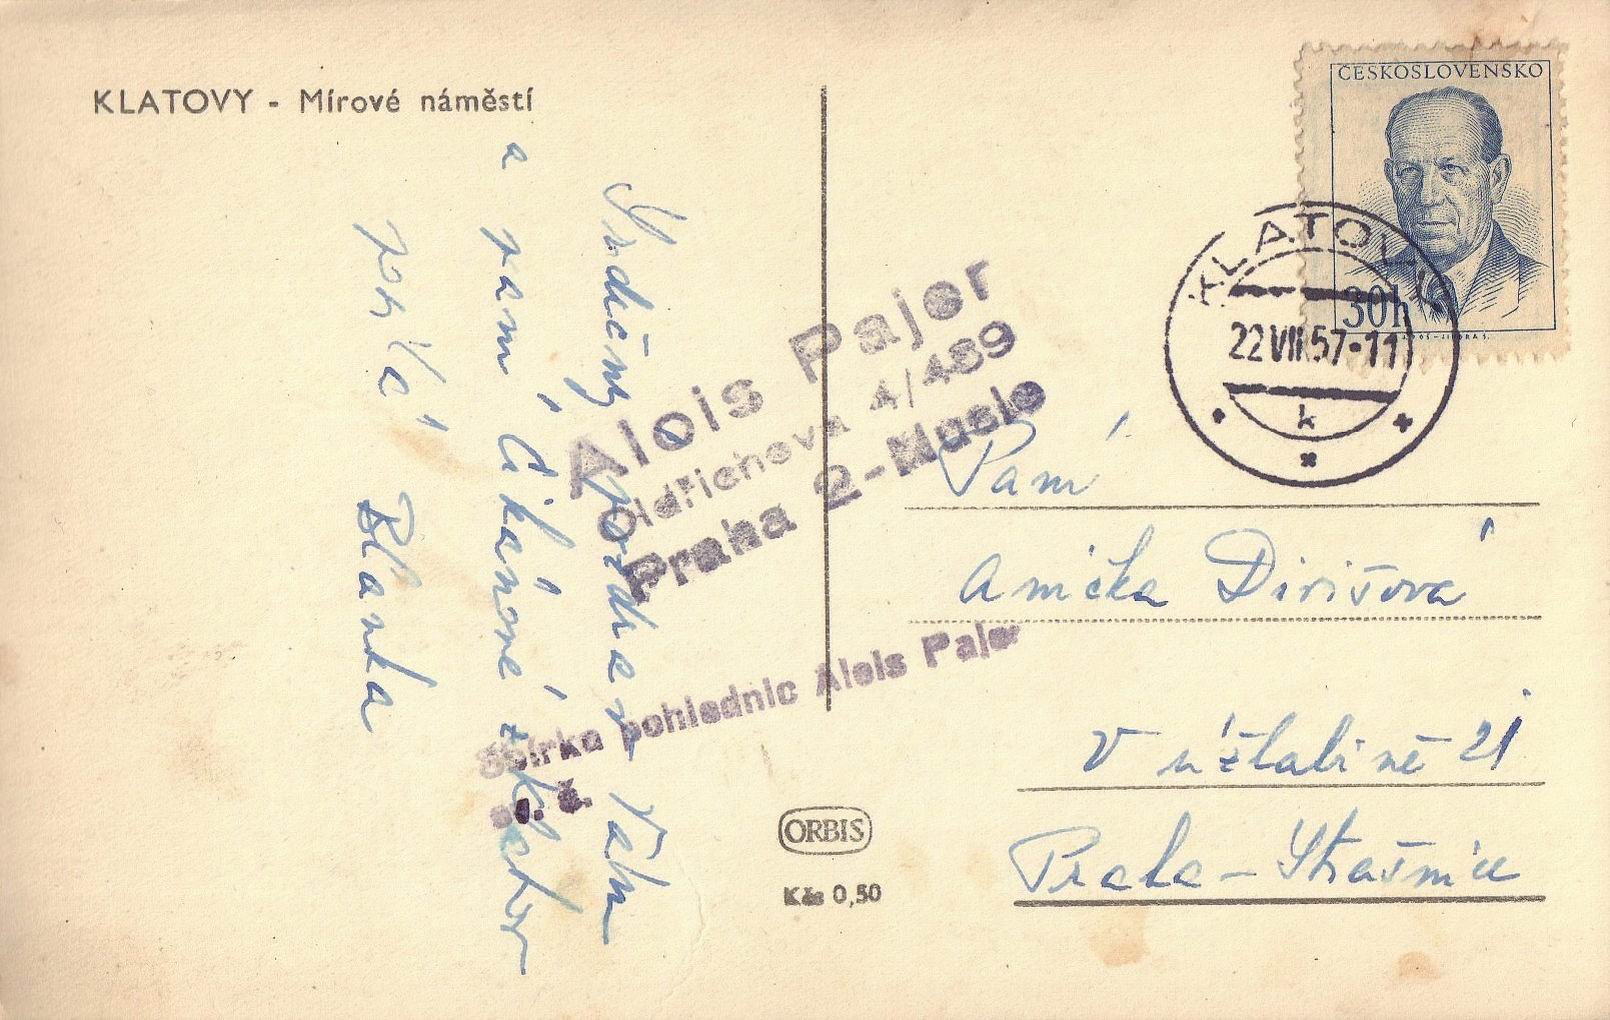 KLATOVY - Mírové náměstí
Srdečný pozdrav Vám
a paní Cikánové z Klatov
posílá Blanka
Alois Pajer
Oldřichova 4/489
Praha 2-Nusle
Sbírka pohlednic Alois Pajer
ev. č.
ČESKOSLOVENSKO
30h
KLATOVY
22 VII 57-11
k
Paní
Anička Divišová
V úžlabině 21
Praha - Strašnice
ORBIS
Kčs 0,50